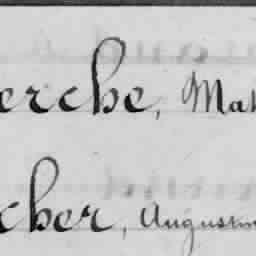 erche, Mat
cher, Augustin